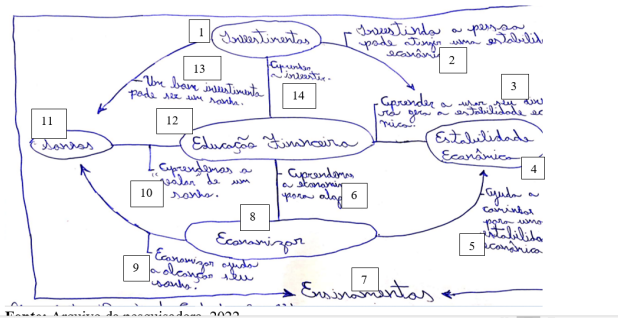 1
Investimentos
Investindo a pessoa
pode atingir uma estabili
econômi
2
13
Um bom investimento
pode ser um sonho.
Aprender
a investir.
14
3
Aprender a usar seu din
ro gera a estabilidade ec
mica.
11
Sonhos
12
Educação Financeira
Estabilidade
Econômica
4
Aprendemos a
"valor" de um
sonho.
10
Aprendemos
a economi
para
6
8
Economizar
Ajuda a
caminhar
para uma
estabilida
econômica
5
Economizar ajuda
a alcançar seu
sonho.
9
7
Ensinamentos
Fonte: Arquivo da pesquisadora, 2022